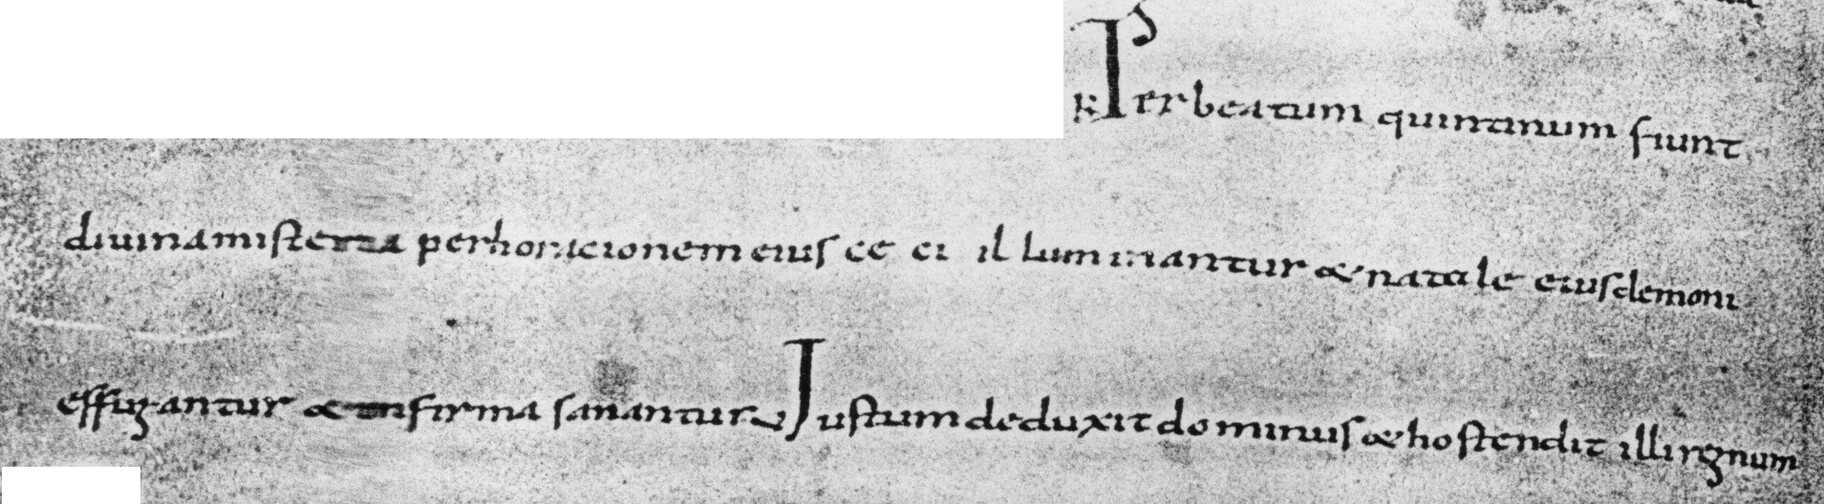 R Per beatum quintinum fiunt
divina misteria per horicionem eius ce ci il luminantur & natale eius demoni
effugantur & infirma sanantur V Justum deduxit dominus & hostendit illi regnum